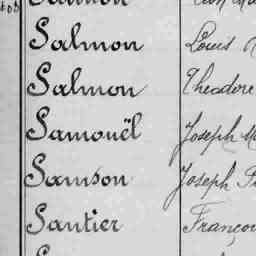 Salmon Louis
Salmon Théodore
Samouël Joseph M
Samson Joseph
Santier Françoi